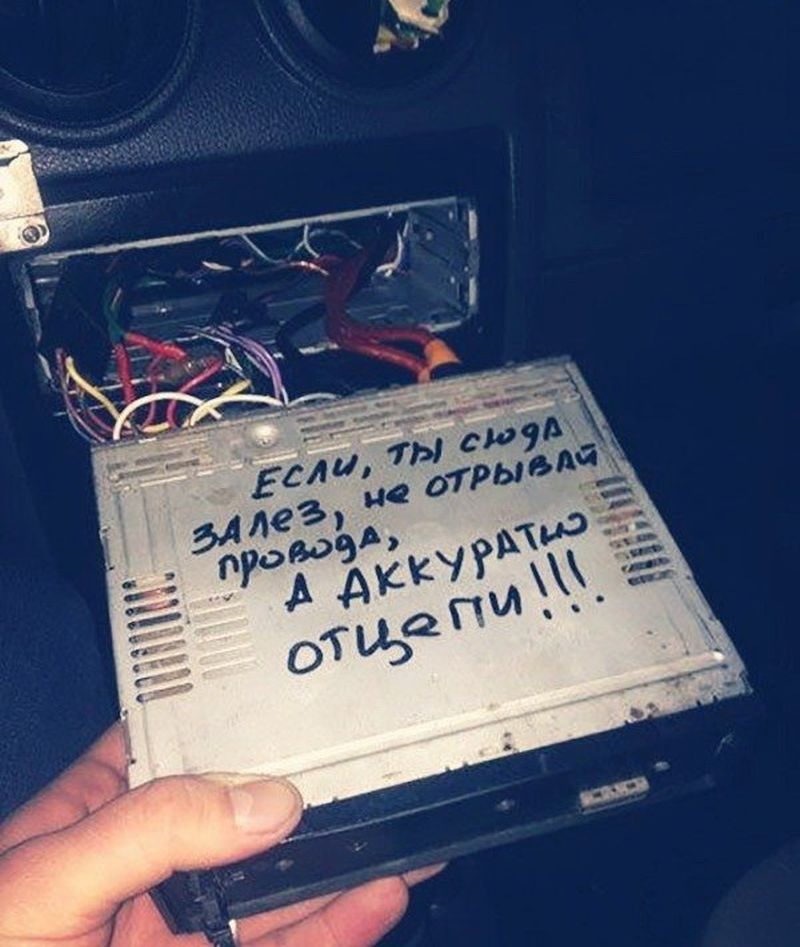 ЕСЛИ, ТЫ СЮДА
ЗАЛЕЗ, НЕ ОТРЫВАЙ
ПРОВОДА,
А АККУРАТНО
ОТЦЕПИ!!!